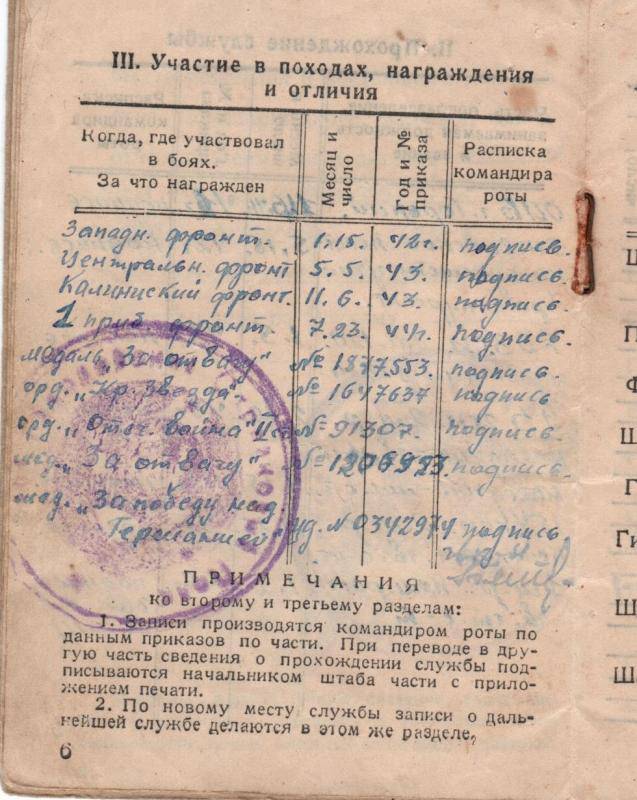 III. Участие в походах, награждения
и отличия
Когда, где участвовал
в боях.
За что награжден
Месяц и
число
Год и №
приказа
Расписка
командира
роты
Западн. фронт. 1.15. 42г. подпись.
Центральн. фронт 5.5. 43. подпись.
Калиниский фронт. 11.6. 43. подпись.
1 приб. фронт. 7.23. 44г. подпись.
медаль „За отвагу" № 1877553. подпись.
орд. „Кр. Звезда" № 1647637 подпись
орд. „Отеч. война" II ст № 91307. подпись.
мед. „За отвагу" № 1206993. подпись.
мед. „За победу над.
Германией" уд. № 0342974 подпись.
ПРИМЕЧАНИЯ
ко второму и третьему разделам:
1. Записи производятся командиром роты по
данным приказов по части. При переводе в дру-
гую часть сведения о прохождении службы под-
писываются начальником штаба части с прило-
жением печати.
2. По новому месту службы записи о даль-
нейшей службе делаются в этом же разделе,
6